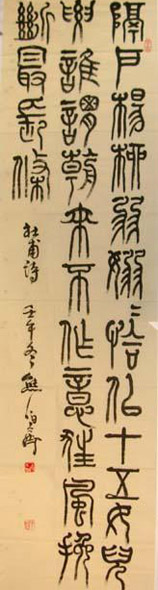 隔戶楊柳弱嫋嫋恰似十五女兒
腰誰謂朝來不作意狂風挽
斷最長條
杜甫詩 壬午冬 熊伯齊